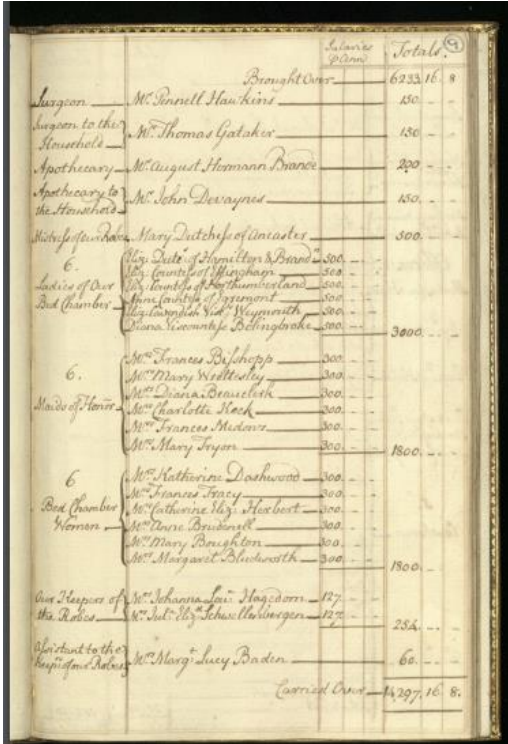 Salaries Totals. 9
℘ Ann
Brought Over 6233. 16. 8
Surgeon Mr. Pennell Hawkins 150. - -
Surgeon to the Household Mr. Thomas Gataker 150 - -
Apothecary Mr. August Hermann Brande 200 - -
Apothecary to the Household Mr. John Devaynes 150. - -
Mistress of our Robes Mary Dutchess of Ancaster 500. - -
6. Ladies of Our Bed Chamber
Eliz: Dutss. of Hamilton & Brandn. 500.
Eliz: Countess of Effingham 500
Eliz: Countess of Northumberland 500
Anne Countess of Egremont 500
Eliz: Cavendish Visss. Weymouth 500
Diana Viscountess Bolingbroke 500.
3000. - -
6. Maids of Honr.
Mrs. Frances Bisshopp 300.
Mrs. Mary Wrottesley 300.
Mrs. Diana Beauclerk 300.
Mrs. Charlotte Keck 300.
Mrs. Frances Medows 300.
Mrs. Mary Tryon 300.
1800. - -
6 Bed Chamber Women
Mrs. Katherine Dashwood 300.
Mrs. Frances Tracy 300.
Mrs. Catherine Eliz: Herbert 300.
Mrs. Anne Brudenell 300.
Mrs. Mary Boughton 300.
Mrs. Margaret Bludworth 300
1800. - -
Our Keepers of the Robes
Mrs. Johanna Lou: Hagedorn 127.
Mrs. Jul: Elizth. Schwellenbergen 127.
254. - -
Assistant to the Keeprs. of our Robes Mrs. Margt. Lucy Baden 60. - -
Carried Over 14,297. 16 8.